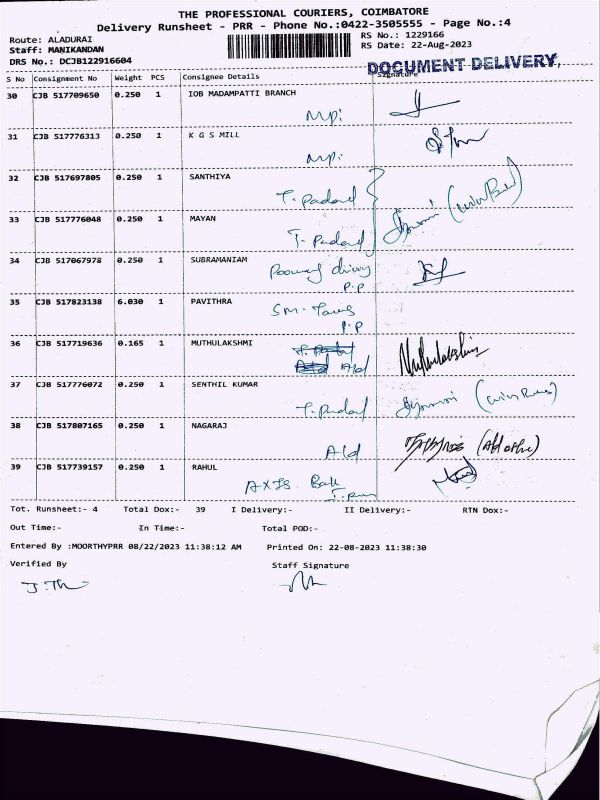 THE PROFESSIONAL COURIERS, COIMBATORE
Delivery Runsheet - PRR - Phone No.:0422-3505555 - Page No.:4
Route: ALADURAI
RS No.: 1229166
Staff: MANIKANDAN
RS Date: 22-Aug-2023
DRS No.: DCJB122916604
DOCUMENT DELIVERY
S No Consignment No Weight PCS Consignee Details Signature
30 CJB 517709650 0.250 1 IOB MADAMPATTI BRANCH
Mpi
31 CJB 517776313 0.250 1 K G S MILL
Mpi
32 CJB 517697805 0.250 1 SANTHIYA
33 CJB 517776048 0.250 1 MAYAN
34 CJB 517067978 0.250 1 SUBRAMANIAM
P.P
35 CJB 517823138 6.030 1 PAVITHRA
P.P
36 CJB 517719636 0.165 1 MUTHULAKSHMI
Ald Muthulakshmi
37 CJB 517776072 0.250 1 SENTHIL KUMAR
38 CJB 517807165 0.250 1 NAGARAJ
Ald
39 CJB 517739157 0.250 1 RAHUL
AXIS
Tot. Runsheet:- 4 Total Dox:- 39 I Delivery:- II Delivery:- RTN Dox:-
Out Time:- In Time:- Total POD:-
Entered By :MOORTHYPRR 08/22/2023 11:38:12 AM Printed On: 22-08-2023 11:38:30
Verified By Staff Signature